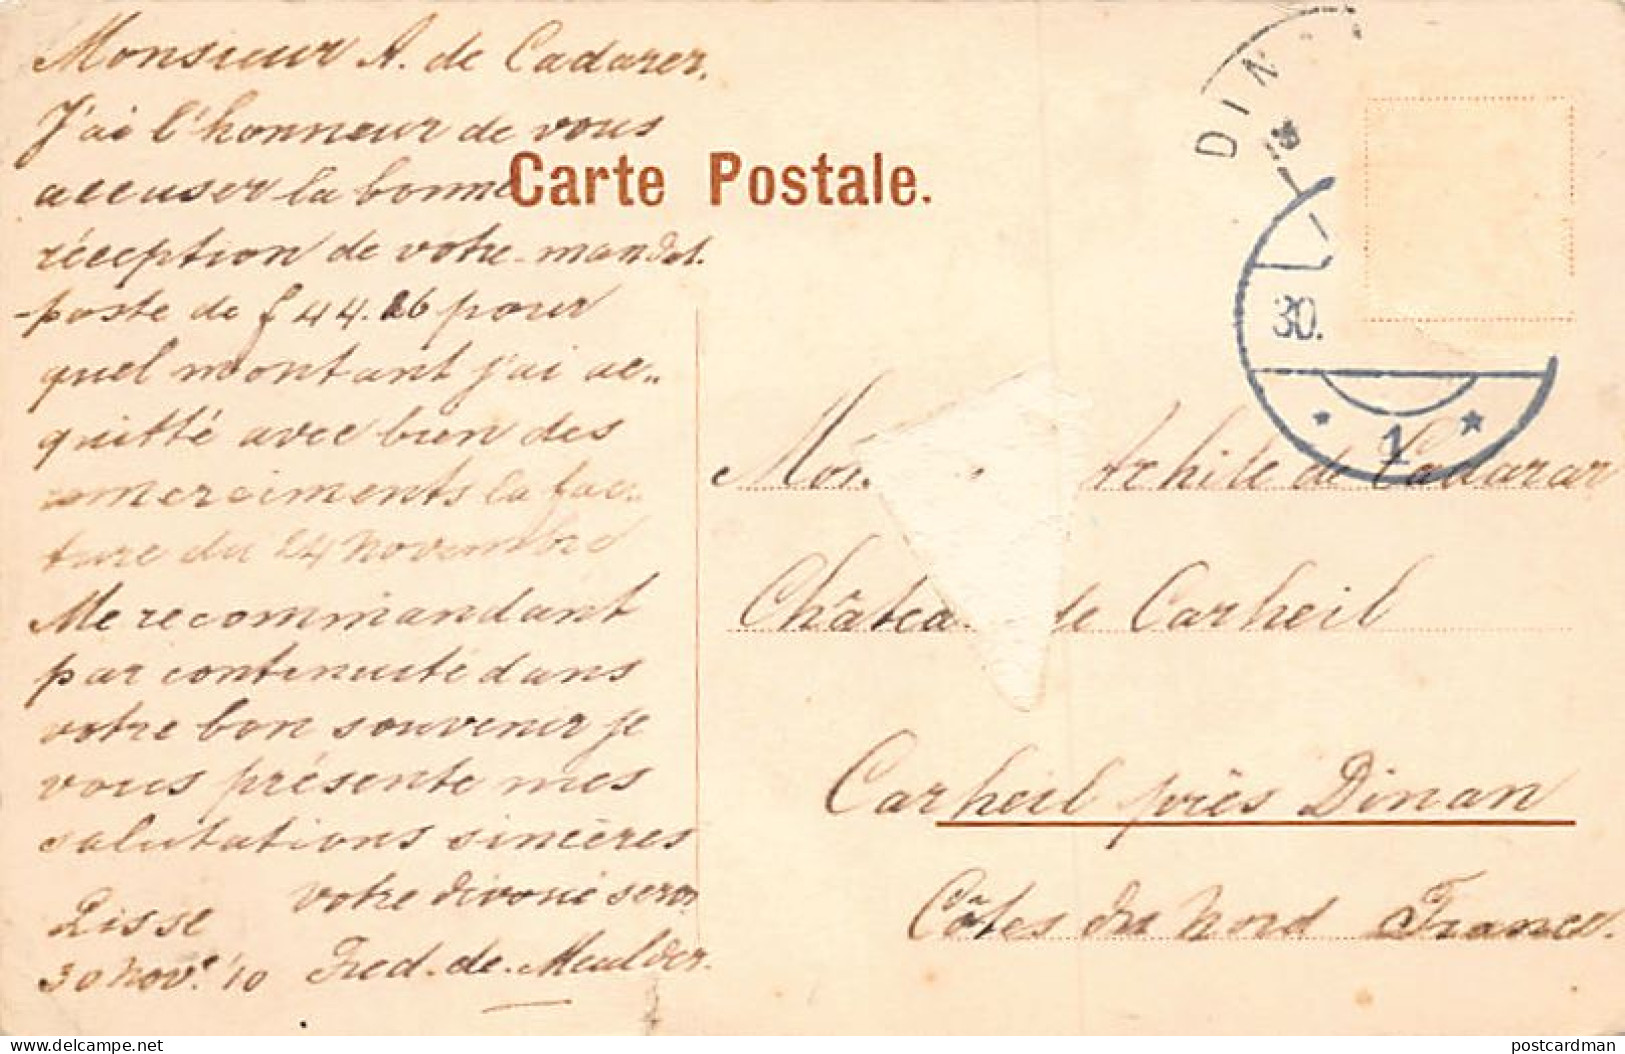 Monsieur A. de Cadarer.
J'ai l'honneur de vous
accuser la bonne
réception de votre mandat.
poste de f 44.26 pour
quel montant j'ai ac„
quitté avec bien des
emerciments la fac„
ture du 24 novembre
Me recommandant
par continuité dans
votre bon souvenir je
vous présente mes
salutations sincères
votre dévoué serv.
Lisse
30 Nov. '10 Fred. de Meulder.
Carte Postale.
DIN
30.
1
Mon Achile de Cadarar
Châtea de Carheil
Carheil près Dinan
Côtes du Nord France.
delcampe.net
postcardman